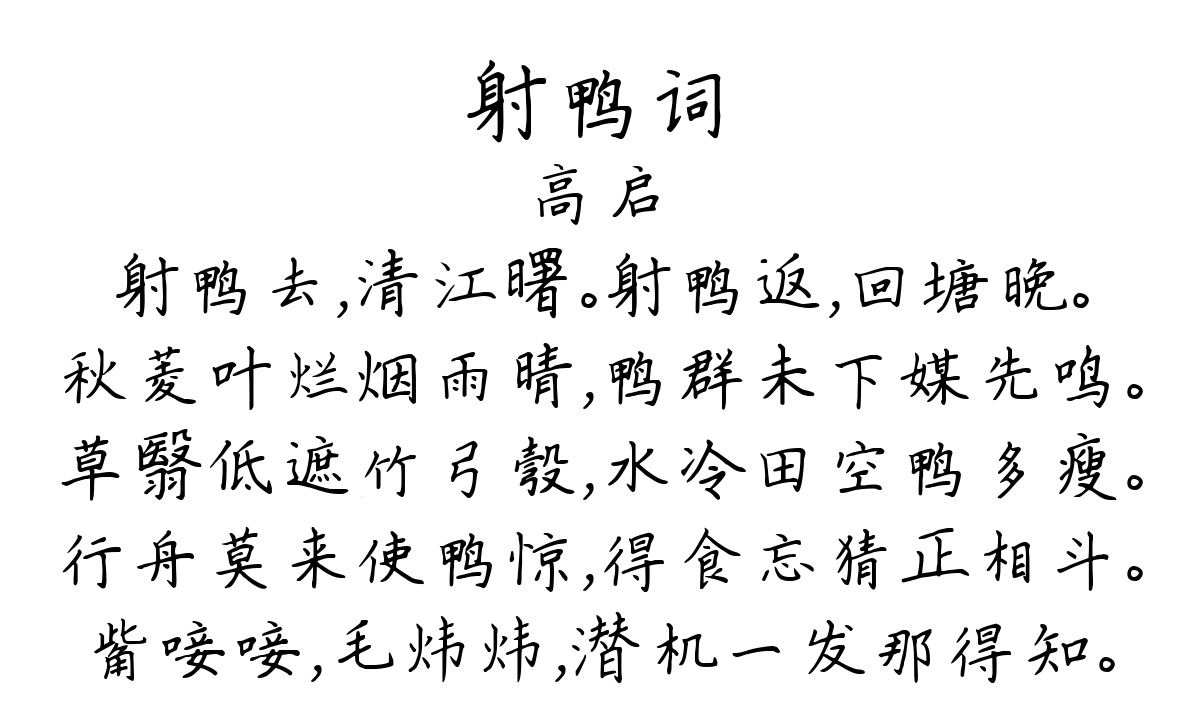 射鸭词
高启
射鸭去,清江曙。射鸭返,回塘晚。
秋菱叶烂烟雨晴,鸭群未下媒先鸣。
草翳低遮竹弓彀,水冷田空鸭多瘦。
行舟莫来使鸭惊,得食忘猜正相斗。
觜唼唼,毛炜炜,潜机一发那得知。